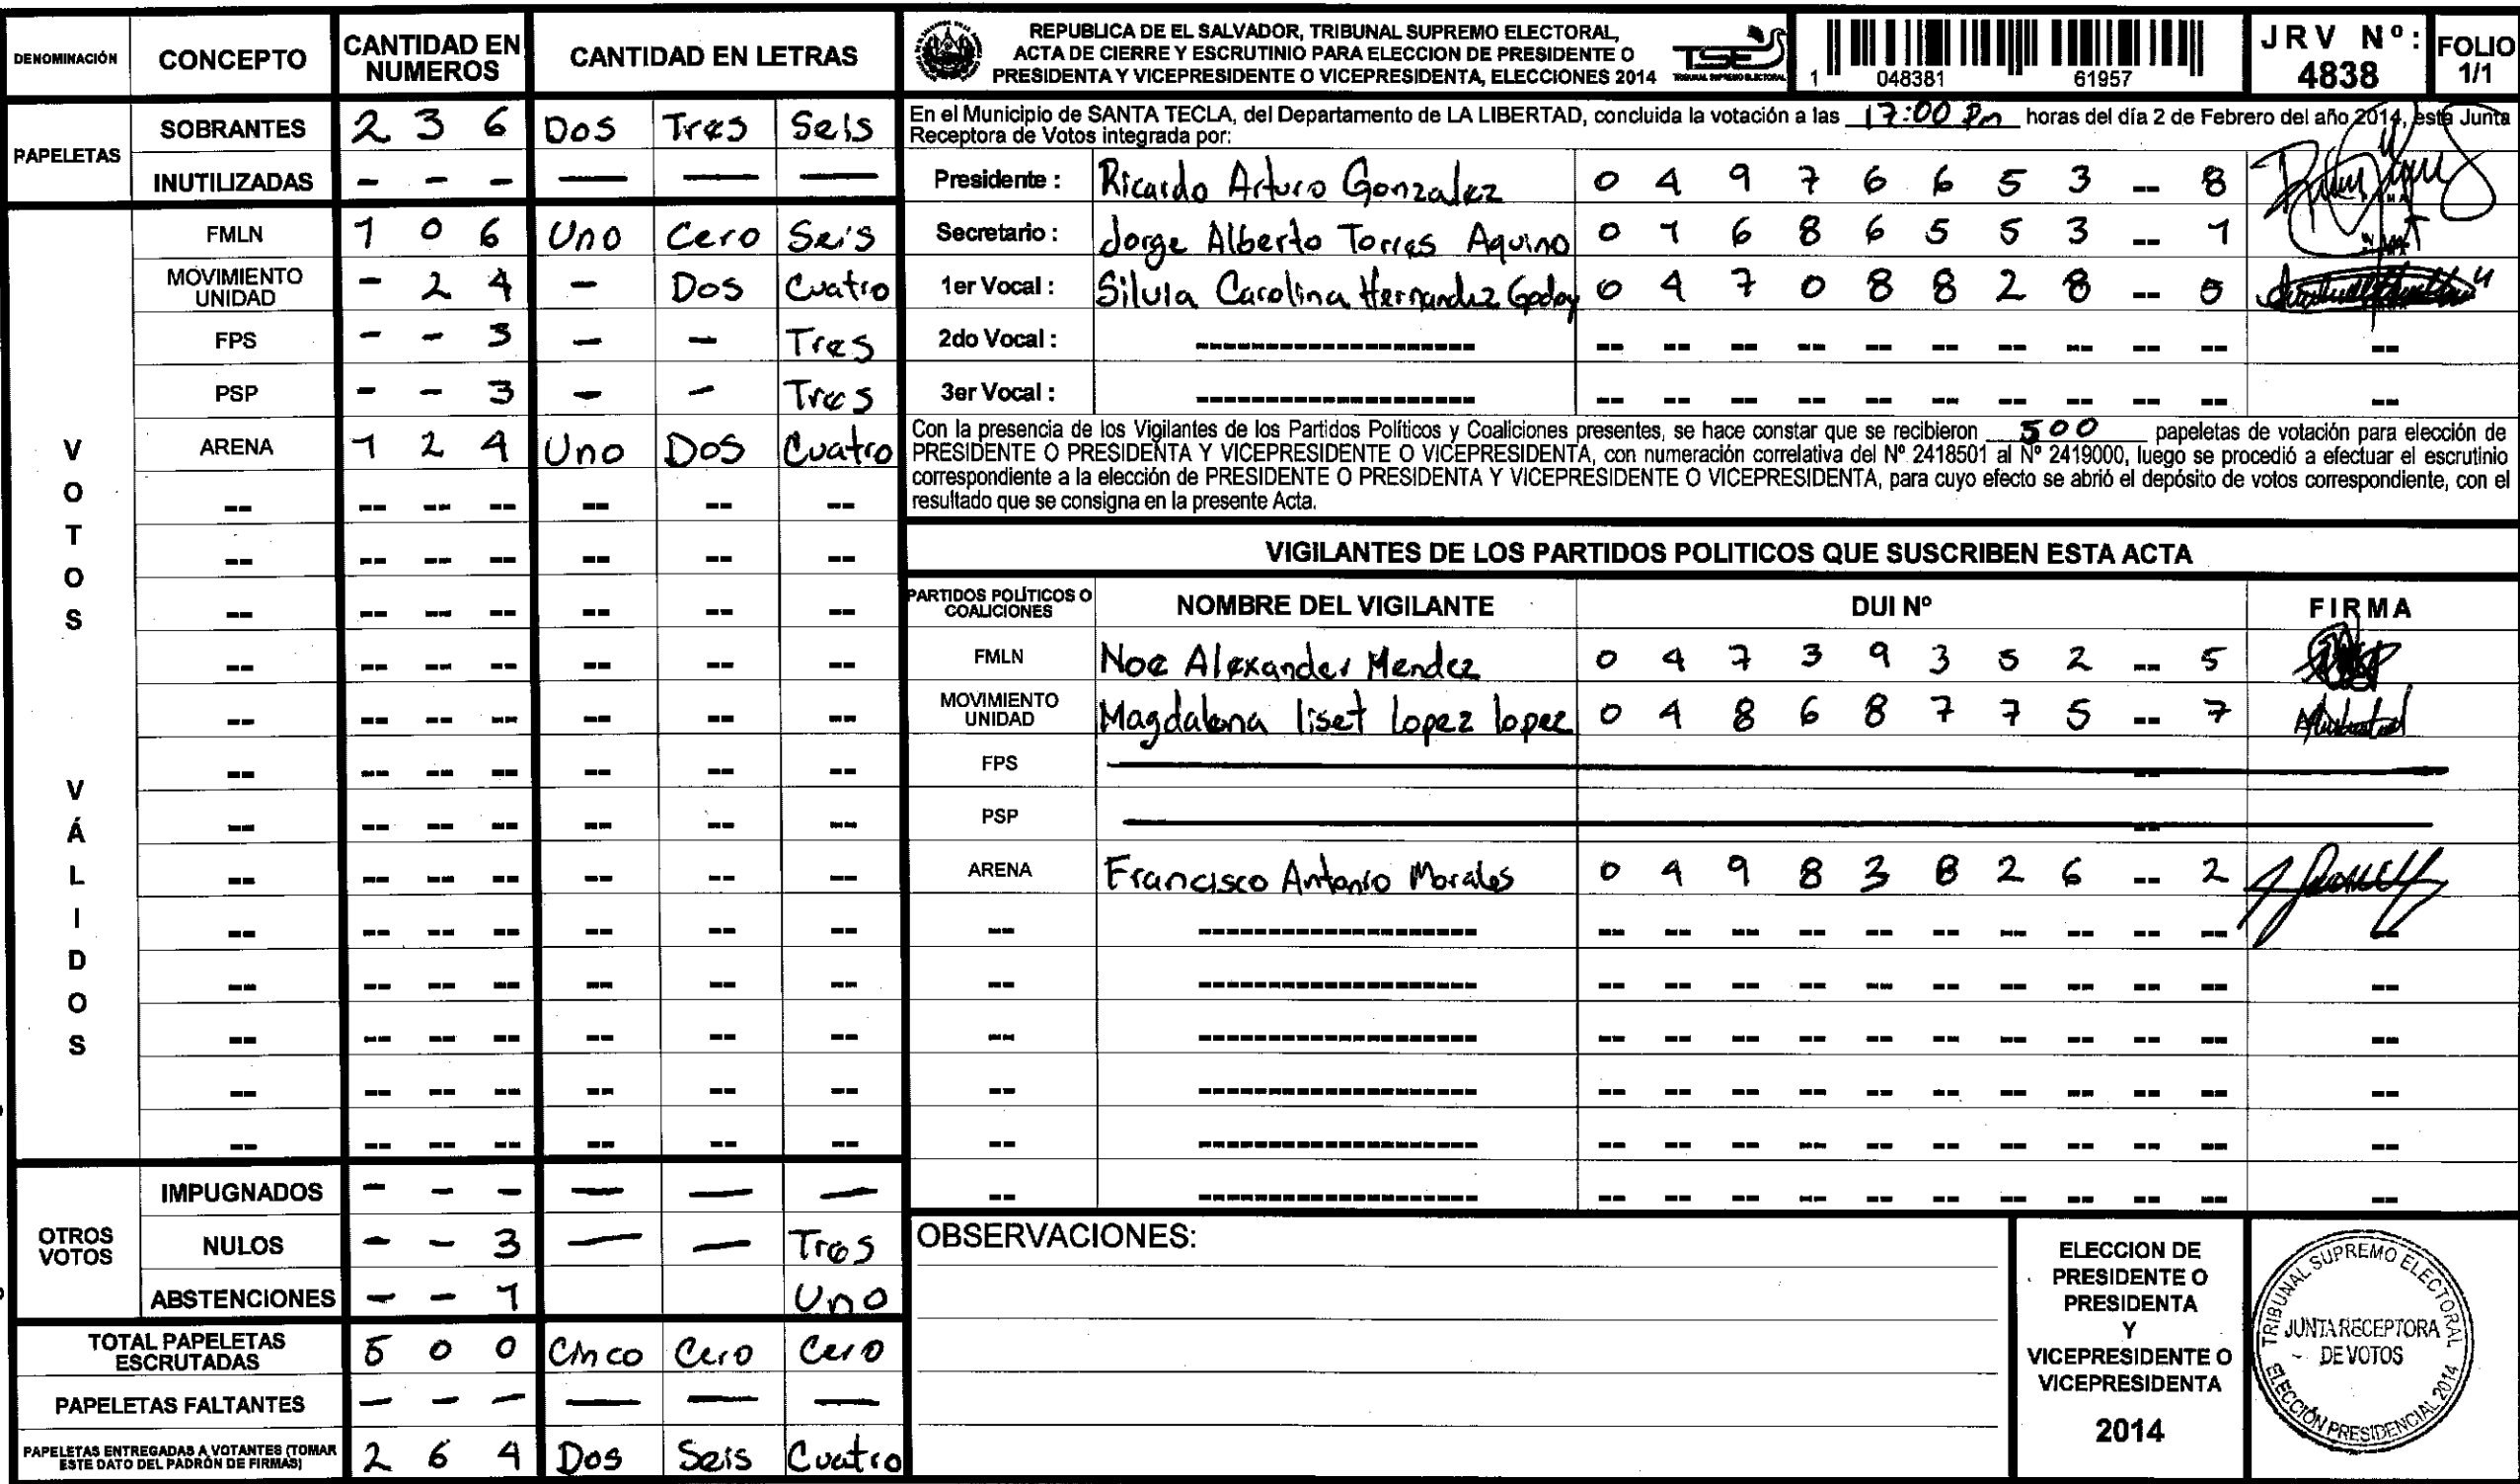 DENOMINACIÓN CONCEPTO CANTIDAD EN NUMEROS CANTIDAD EN LETRAS
PAPELETAS
SOBRANTES 2 3 6 Dos Tres Seis
INUTILIZADAS - - - — — —
VOTOS VÁLIDOS
FMLN 1 0 6 Uno Cero Seis
MOVIMIENTO UNIDAD - 2 4 - Dos Cuatro
FPS - - 3 - - Tres
PSP - - 3 - - Tres
ARENA 1 2 4 Uno Dos Cuatro
OTROS VOTOS
IMPUGNADOS - - - — — —
NULOS - - 3 — — Tres
ABSTENCIONES - - 1 Uno
TOTAL PAPELETAS ESCRUTADAS 5 0 0 Cinco Cero Cero
PAPELETAS FALTANTES - - - — — —
PAPELETAS ENTREGADAS A VOTANTES (TOMAR ESTE DATO DEL PADRÓN DE FIRMAS) 2 6 4 Dos Seis Cuatro
REPUBLICA DE EL SALVADOR, TRIBUNAL SUPREMO ELECTORAL,
ACTA DE CIERRE Y ESCRUTINIO PARA ELECCION DE PRESIDENTE O
PRESIDENTA Y VICEPRESIDENTE O VICEPRESIDENTA, ELECCIONES 2014
TSE
TRIBUNAL SUPREMO ELECTORAL
1 048381 61957
JRV Nº: 4838
FOLIO 1/1
En el Municipio de SANTA TECLA, del Departamento de LA LIBERTAD, concluida la votación a las 17:00 Pm horas del día 2 de Febrero del año 2014, esta Junta
Receptora de Votos integrada por:
Presidente : Ricardo Arturo Gonzalez 0 4 9 7 6 6 5 3 -- 8
Secretario : Jorge Alberto Torres Aquino 0 1 6 8 6 5 5 3 -- 1
1er Vocal : Silvia Carolina Hernandez Godoy 0 4 7 0 8 8 2 8 -- 0
2do Vocal :
3er Vocal :
Con la presencia de los Vigilantes de los Partidos Políticos y Coaliciones presentes, se hace constar que se recibieron 500 papeletas de votación para elección de
PRESIDENTE O PRESIDENTA Y VICEPRESIDENTE O VICEPRESIDENTA, con numeración correlativa del Nº 2418501 al Nº 2419000, luego se procedió a efectuar el escrutinio
correspondiente a la elección de PRESIDENTE O PRESIDENTA Y VICEPRESIDENTE O VICEPRESIDENTA, para cuyo efecto se abrió el depósito de votos correspondiente, con el
resultado que se consigna en la presente Acta.
VIGILANTES DE LOS PARTIDOS POLITICOS QUE SUSCRIBEN ESTA ACTA
PARTIDOS POLÍTICOS O COALICIONES NOMBRE DEL VIGILANTE DUI Nº FIRMA
FMLN Noe Alexander Mendez 0 4 7 3 9 3 5 2 -- 5
MOVIMIENTO UNIDAD Magdalena liset lopez lopez 0 4 8 6 8 7 7 5 -- 7
FPS
PSP
ARENA Francisco Antonio Morales 0 4 9 8 3 8 2 6 -- 2
OBSERVACIONES:
ELECCION DE
PRESIDENTE O
PRESIDENTA
Y
VICEPRESIDENTE O
VICEPRESIDENTA
2014
TRIBUNAL SUPREMO ELECTORAL
JUNTA RECEPTORA
DE VOTOS
ELECCIÓN PRESIDENCIAL 2014